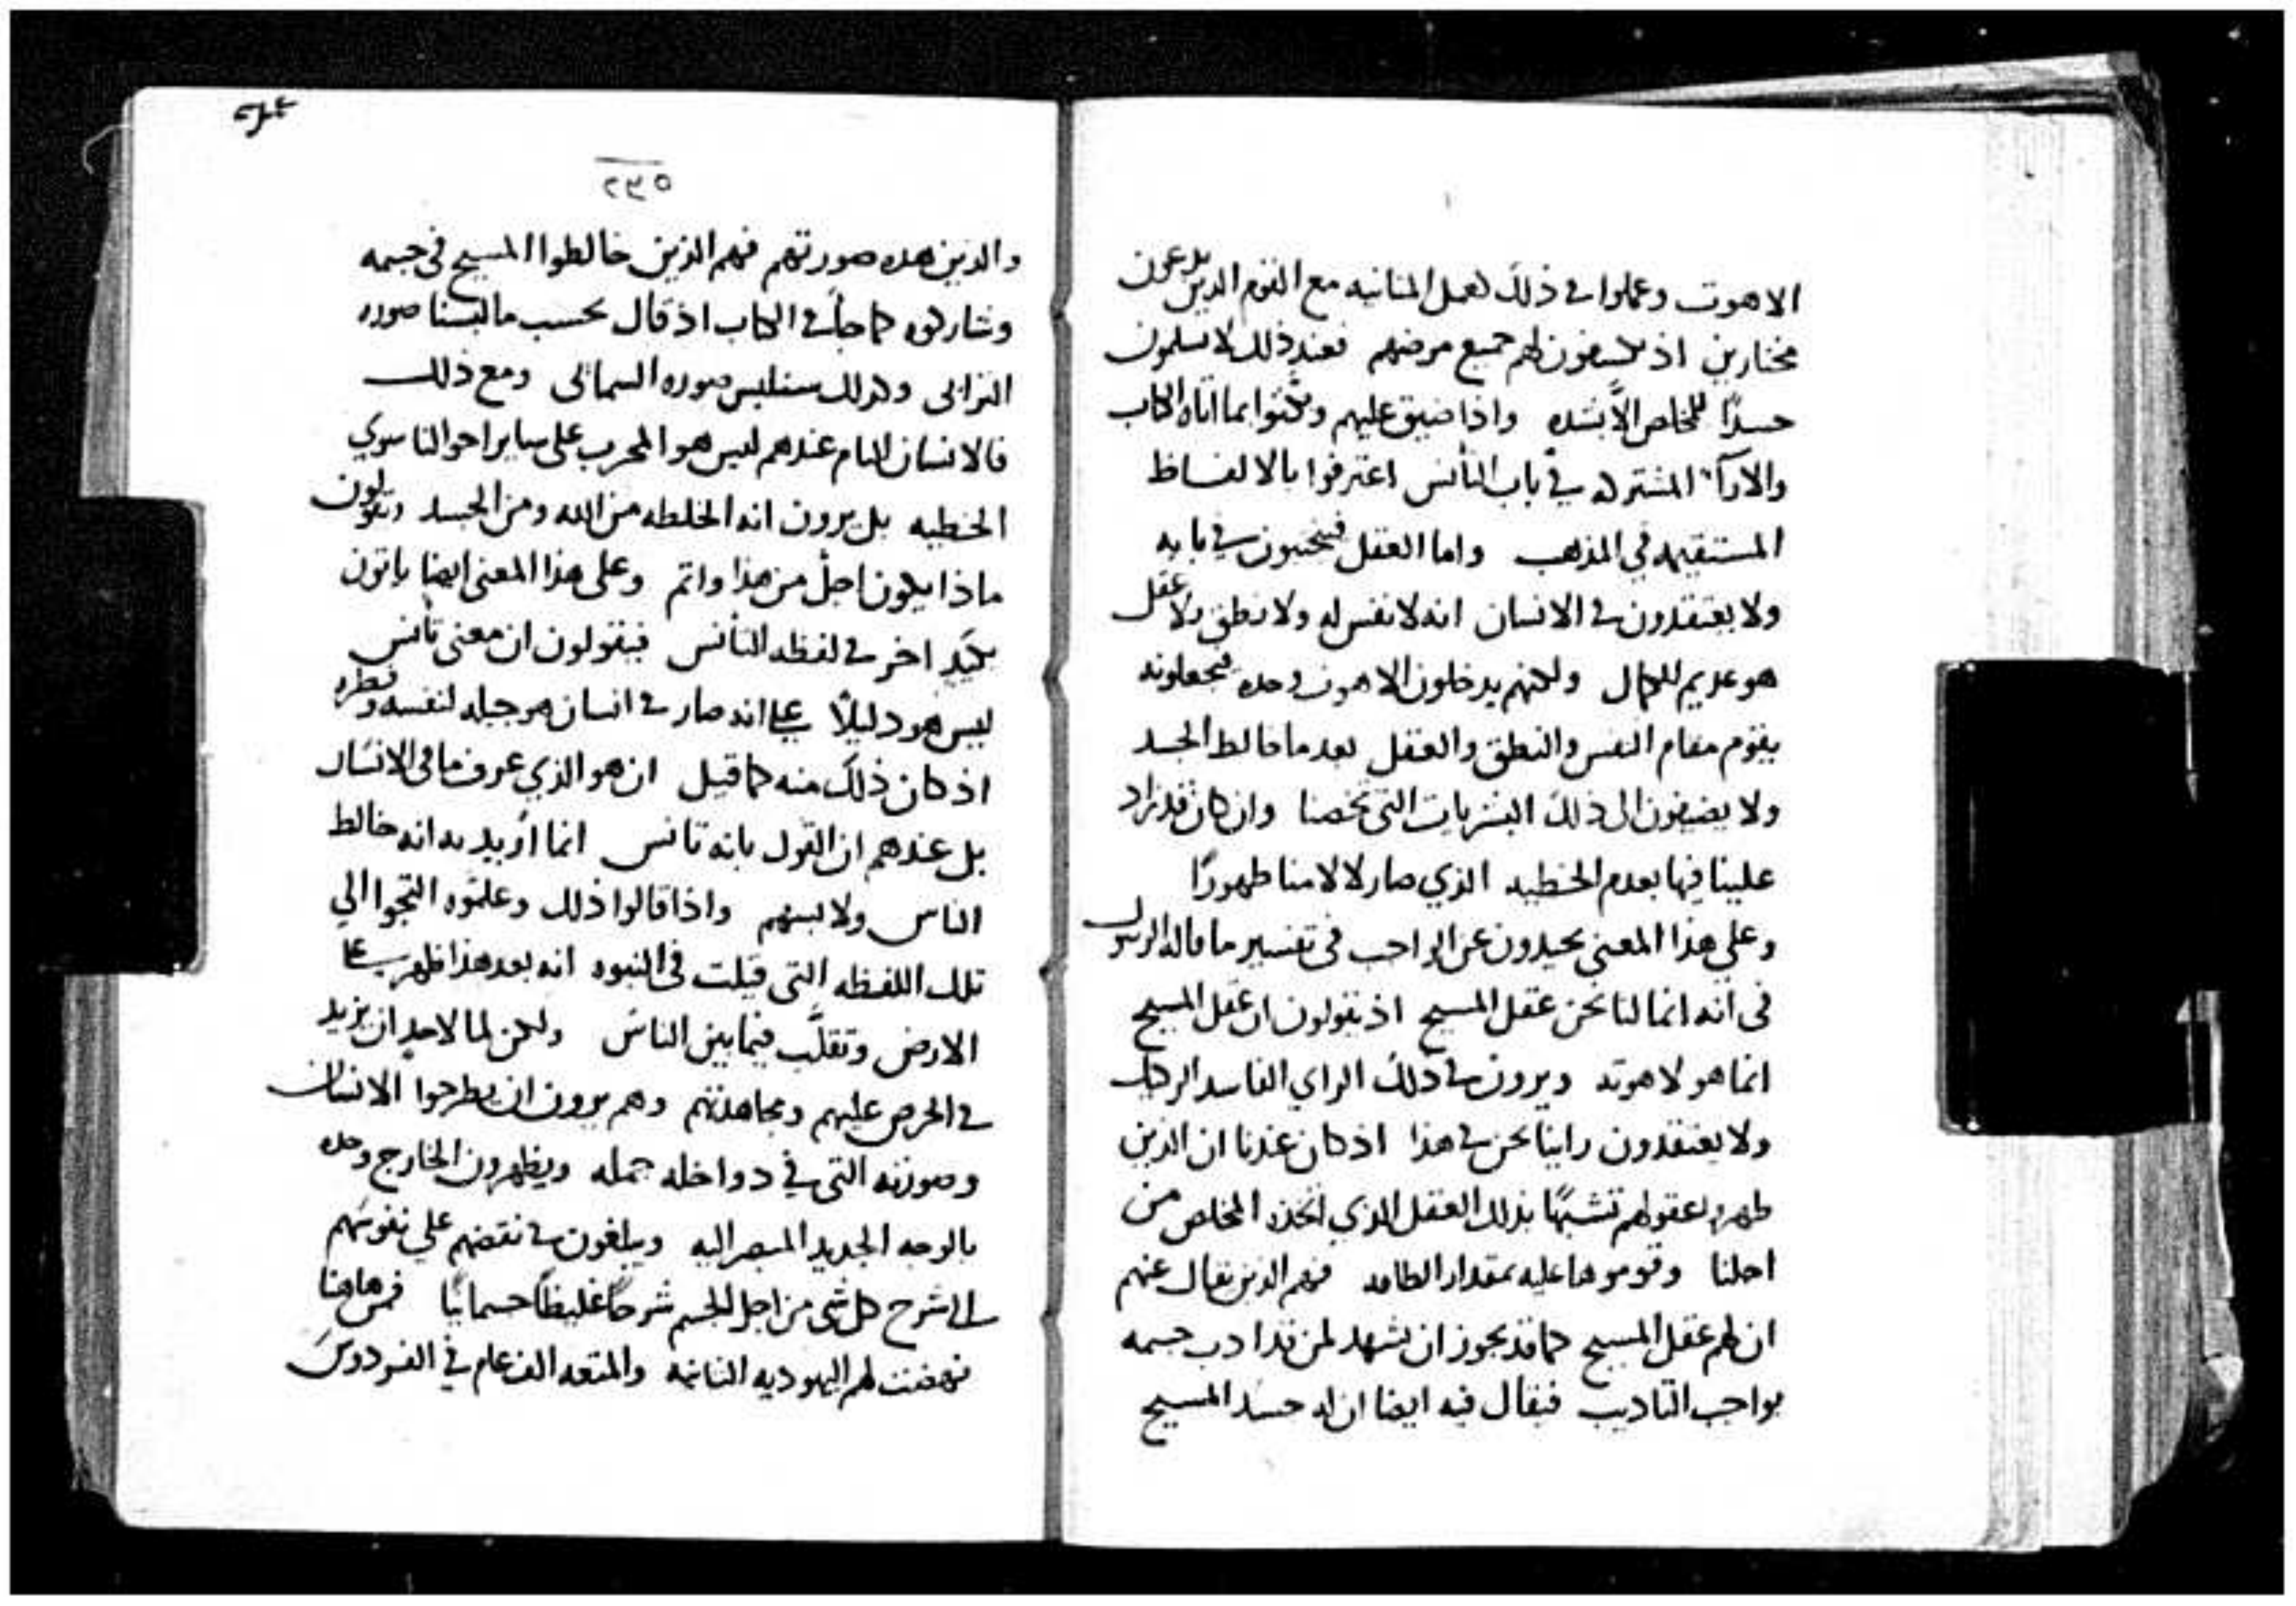 الاهوت وعملوا في ذلك لعمل المنانيه مع القوم الدين يدعون
مختارين اذ يكشفون لهم جميع مرضهم فعند ذلك لا يسلمون
جسدًا للخلص الا بشده واذا ضيق عليهم وبكتوا بما اتاه الكتاب
والارآ المشتركه في باب التأنس اعترفوا بالالفاظ
المستقيمه في المذهب واما العقل فيخبون في بابه
ولا يعتقدون في الانسان انه لا نفس له ولا نطق ولا عقل
هو عديم للكمال ولكنهم يدخلون الاهوت وحده فيجعلونه
يقوم مقام النفس والنطق والعقل بعد ما خالط الجسد
ولا يضيفون الى ذلك البشريات التي تخصنا وان كان قد زاد
علينا فيها بعدم الخطيه الذي صار لالامنا طهورًا
وعلي هذا المعنى يحيدون عن الواجب في تفسير ما قاله الرسول
في انه انما لنا نحن عقل المسيح اذ يقولون ان عقل المسيح
انما هو لاهوته ويرون في ذلك الراي الفاسد الردي
ولا يعتقدون راينا نحن في هذا اذ كان عندنا ان الذين
طهروا عقولهم تشبهًا بذلك العقل الذي اتخذه المخلص من
اجلنا وقوموها عليه بمقدار الطاقه فهم الذين يقال عنهم
ان لهم عقل المسيح كما قد يجوز ان نشهد لمن قد ادب جسمه
بواجب التاديب فيقال فيه ايضا ان له جسد المسيح
٢٣٥
والدين هذه صورتهم فهم الذين خالطوا المسيح في جسمه
وشاركوه كما جآ في الكتاب اذ قال بحسب ما لبسنا صوره
الترابي وكذلك سنلبس صوره السمائى ومع ذلك
فالانسان التام عندهم ليس هو المجرب على ساير احوالنا سوي
الخطيه بل يرون انه الخلطه من الله ومن الجسد ويقولون
ماذا يكون اجل من هذا واتم وعلى هذا المعنى ايضا ياتون
بكيد اخر في لفظه التانس فيقولون ان معنى تأنس
ليس هو دليلاً علي انه صار في انسان هو جبله لنفسه وفطره
اذ كان ذلك منه كما قيل ان هو الذي عرف ما في الانسان
بل عندهم ان القول بانه تانس انما أريد به انه خالط
الناس ولابسهم واذا قالوا ذلك وعلموه التجوا الي
تلك اللفظه التى قيلت في النبوه انه بعد هذا ظهر علي
الارض وتقلَّب فيما بين الناس ولكن لما لاحد ان يزيد
في الحرص عليهم ومجاهدتهم وهم يرون ان يطرحوا الانسان
وصورته التى في دواخله جمله ويظهرون الخارج وحده
بالوجه الجديد المبصر اليه ويبلغون في نقضهم علي نفوسهم
الى شرح كل شى من اجل الجسم شرحًا غليظًا جسمانيًا فمن هاهنا
نهضت لهم اليهوديه الثانيه والمتعه الف عام في الفردوس